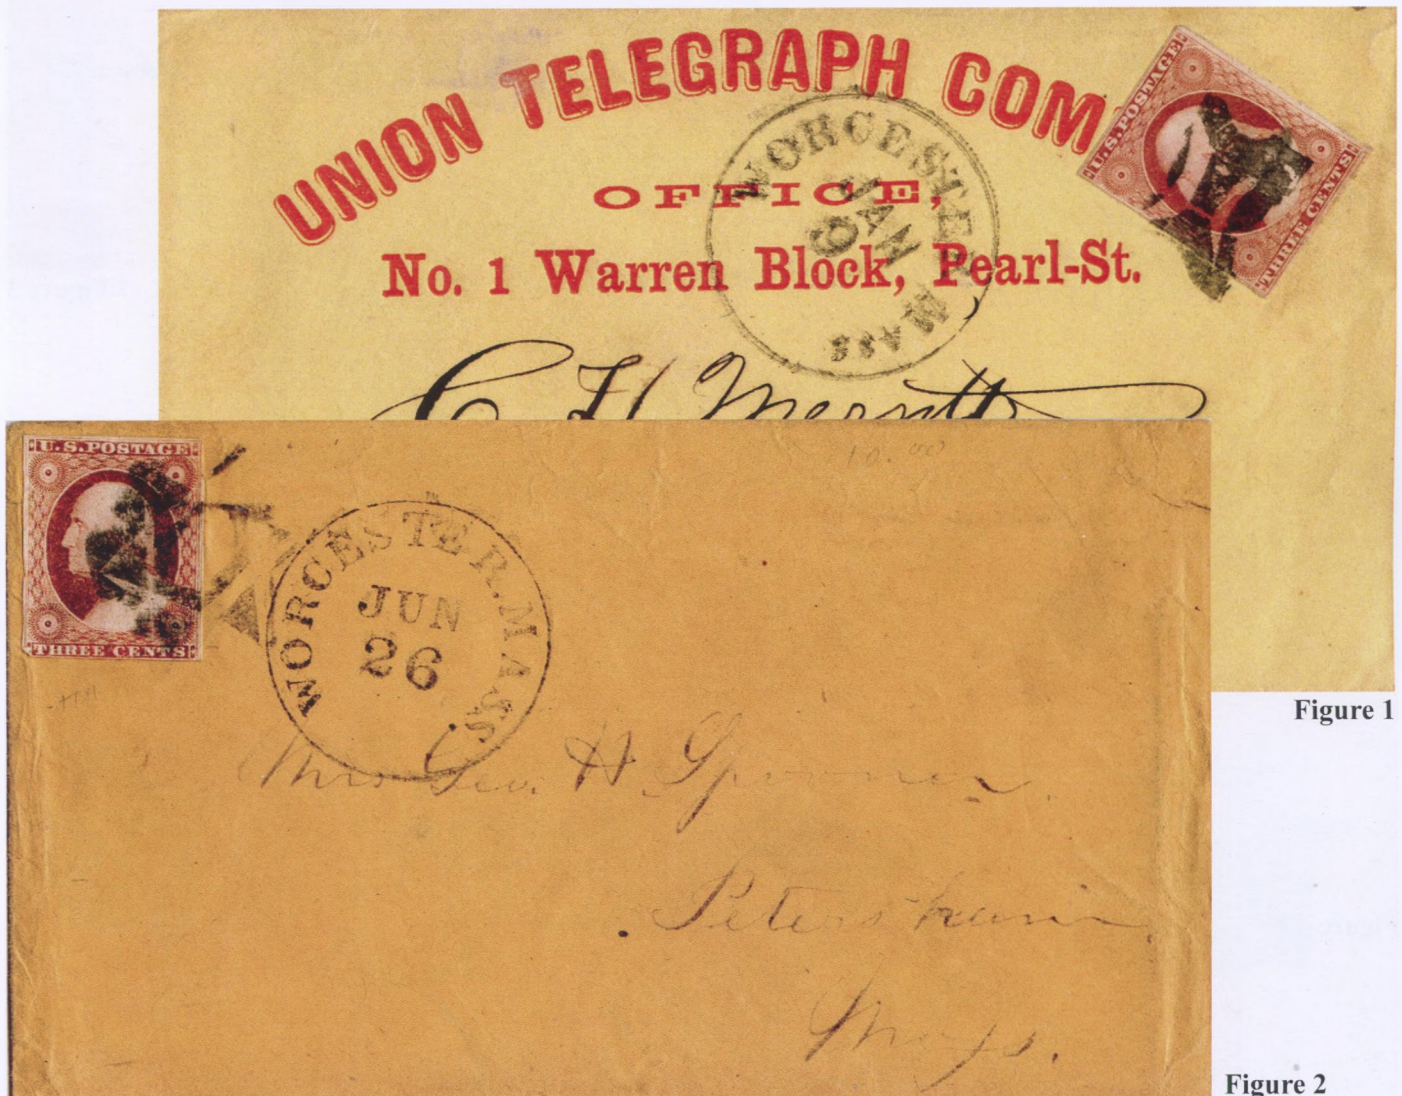 UNION TELEGRAPH COM
OFFICE,
No. 1 Warren Block, Pearl-St.
WORCESTER MASS
JAN
9
U.S.POSTAGE
THREE CENTS
C H Merritt
Figure 1
U.S.POSTAGE
THREE CENTS
10.00
WORCESTER.MASS.
JUN
26
Mrs Geo. H Spooner.
Petersham
Mass.
Figure 2